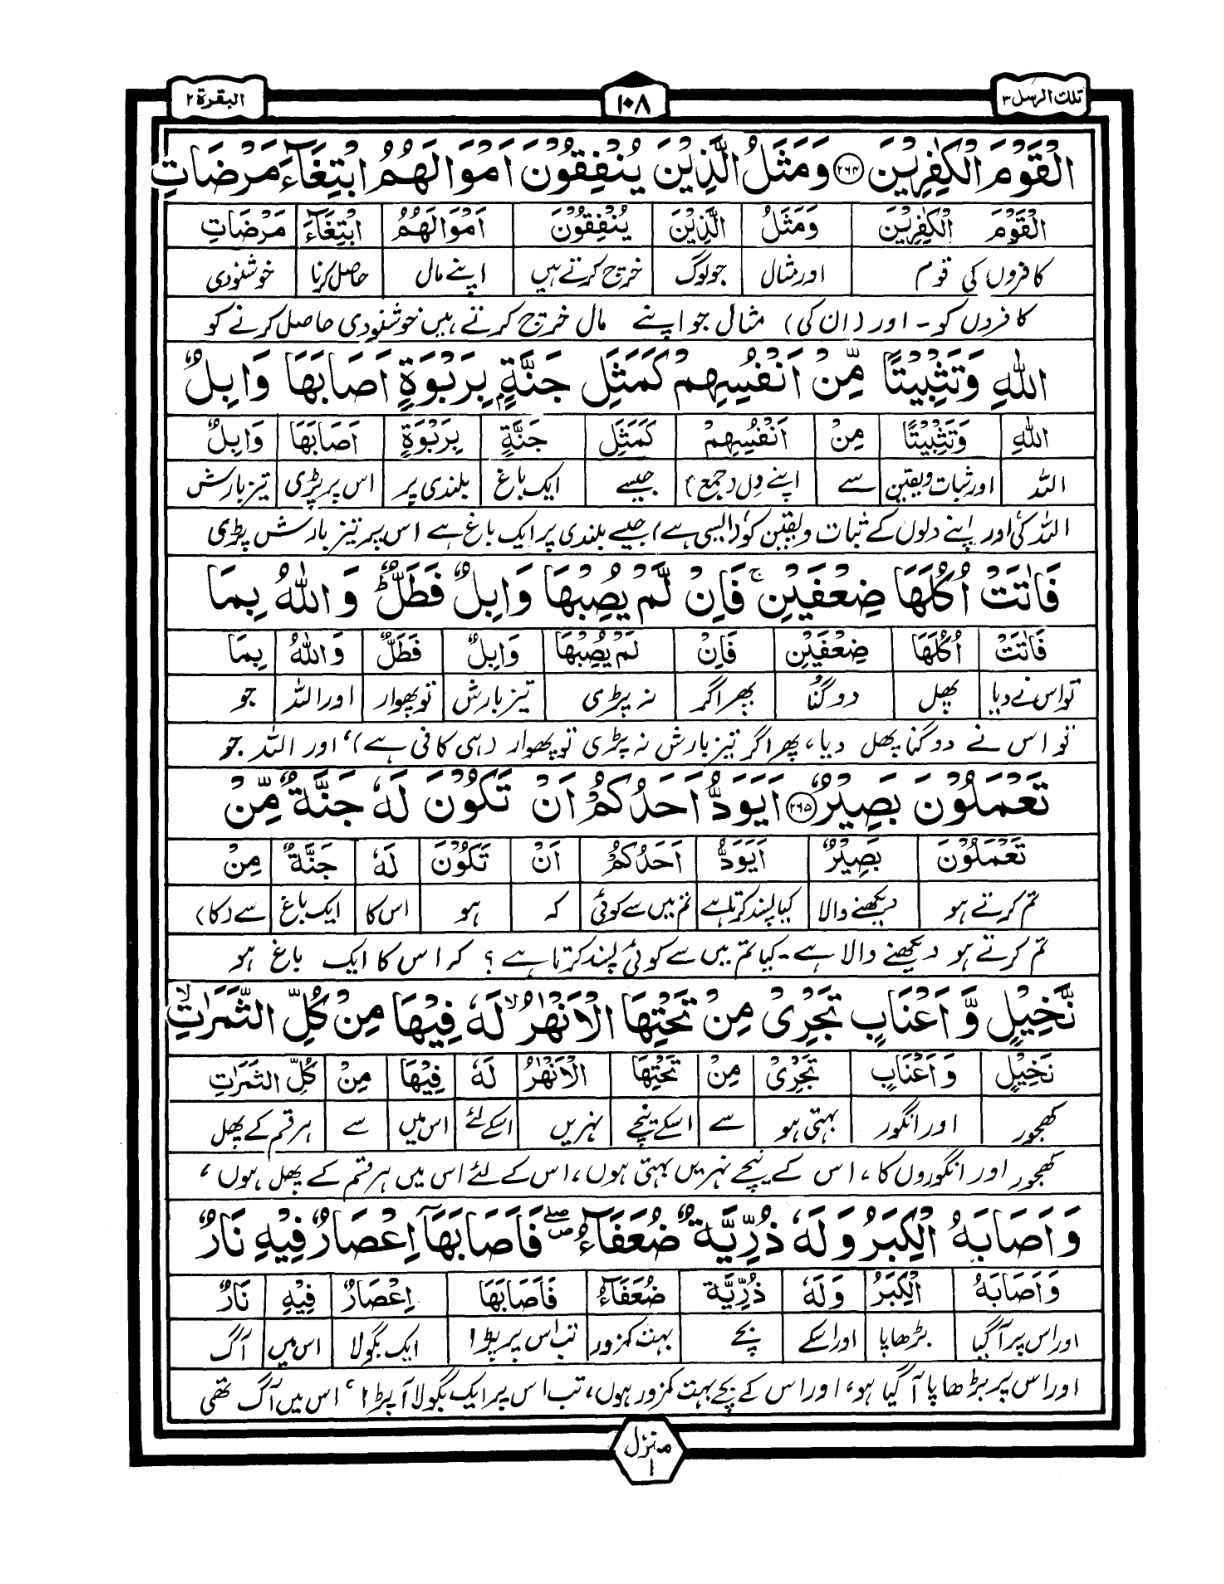 تلك الرسل ٣
١٠٨
البقرة ٢
الْقَوْمَ الْكٰفِرِيْنَ ۝٢٦٤ وَمَثَلُ الَّذِيْنَ يُنْفِقُوْنَ اَمْوَالَهُمُ ابْتِغَآءَ مَرْضَاتِ
الْقَوْمَ الْكٰفِرِيْنَ وَمَثَلُ الَّذِيْنَ يُنْفِقُوْنَ اَمْوَالَهُمُ ابْتِغَآءَ مَرْضَاتِ
کافروں کی قوم اور مثال جو لوگ خرچ کرتے ہیں اپنے مال حاصل کرنا خوشنودی
کافروں کو۔ اور (ان کی) مثال جو اپنے مال خرچ کرتے ہیں خوشنودی حاصل کرنے کو
اللّٰهِ وَتَثْبِيْتًا مِّنْ اَنْفُسِهِمْ كَمَثَلِ جَنَّةٍۭ بِرَبْوَةٍ اَصَابَهَا وَابِلٌ
اللّٰهِ وَتَثْبِيْتًا مِنْ اَنْفُسِهِمْ كَمَثَلِ جَنَّةٍ بِرَبْوَةٍ اَصَابَهَا وَابِلٌ
اللہ اور ثبات و یقین سے اپنے دل (جمع) جیسے ایک باغ بلندی پر اس پر پڑی تیز بارش
اللہ کی اور اپنے دلوں کے ثبات و یقین کو (ایسی ہے) جیسے بلندی پر ایک باغ ہے اس پر تیز بارش پڑی
فَاٰتَتْ اُكُلَهَا ضِعْفَيْنِ ۚ فَاِنْ لَّمْ يُصِبْهَا وَابِلٌ فَطَلٌّ ؕ وَاللّٰهُ بِمَا
فَاٰتَتْ اُكُلَهَا ضِعْفَيْنِ فَاِنْ لَّمْ يُصِبْهَا وَابِلٌ فَطَلٌّ وَاللّٰهُ بِمَا
تو اس نے دیا پھل دوگنا پھر اگر نہ پڑی تیز بارش تو پھوار اور اللہ جو
تو اس نے دوگنا پھل دیا، پھر اگر تیز بارش نہ پڑی تو پھوار (ہی کافی ہے)، اور اللہ جو
تَعْمَلُوْنَ بَصِيْرٌ ۝٢٦٥ اَيَوَدُّ اَحَدُكُمْ اَنْ تَكُوْنَ لَهٗ جَنَّةٌ مِّنْ
تَعْمَلُوْنَ بَصِيْرٌ اَيَوَدُّ اَحَدُكُمْ اَنْ تَكُوْنَ لَهٗ جَنَّةٌ مِنْ
تم کرتے ہو دیکھنے والا کیا پسند کرتا ہے تم میں سے کوئی کہ ہو اس کا ایک باغ سے (کا)
تم کرتے ہو دیکھنے والا ہے۔ کیا تم میں سے کوئی پسند کرتا ہے؟ کہ اس کا ایک باغ ہو
نَّخِيْلٍ وَّاَعْنَابٍ تَجْرِىْ مِنْ تَحْتِهَا الْاَنْهٰرُ ۙ لَهٗ فِيْهَا مِنْ كُلِّ الثَّمَرٰتِ ۙ
نَخِيْلٍ وَاَعْنَابٍ تَجْرِىْ مِنْ تَحْتِهَا الْاَنْهٰرُ لَهٗ فِيْهَا مِنْ كُلِّ الثَّمَرٰتِ
کھجور اور انگور بہتی ہو سے اسکے نیچے نہریں اسکے لئے اس میں سے ہر قسم کے پھل
کھجور اور انگوروں کا، اس کے نیچے نہریں بہتی ہوں، اس کے لئے اس میں ہر قسم کے پھل ہوں،
وَاَصَابَهُ الْكِبَرُ وَلَهٗ ذُرِّيَّةٌ ضُعَفَآءُ ۖ فَاَصَابَهَاۤ اِعْصَارٌ فِيْهِ نَارٌ
وَاَصَابَهُ الْكِبَرُ وَلَهٗ ذُرِّيَّةٌ ضُعَفَآءُ فَاَصَابَهَا اِعْصَارٌ فِيْهِ نَارٌ
اور اس پر آگیا بڑھاپا اور اسکے بچے بہت کمزور تب اس پر پڑا ایک بگولا اس میں آگ
اور اس پر بڑھاپا آ گیا ہو، اور اس کے بچے بہت کمزور ہوں، تب اس پر ایک بگولا آپڑا، اس میں آگ تھی
منزل ١